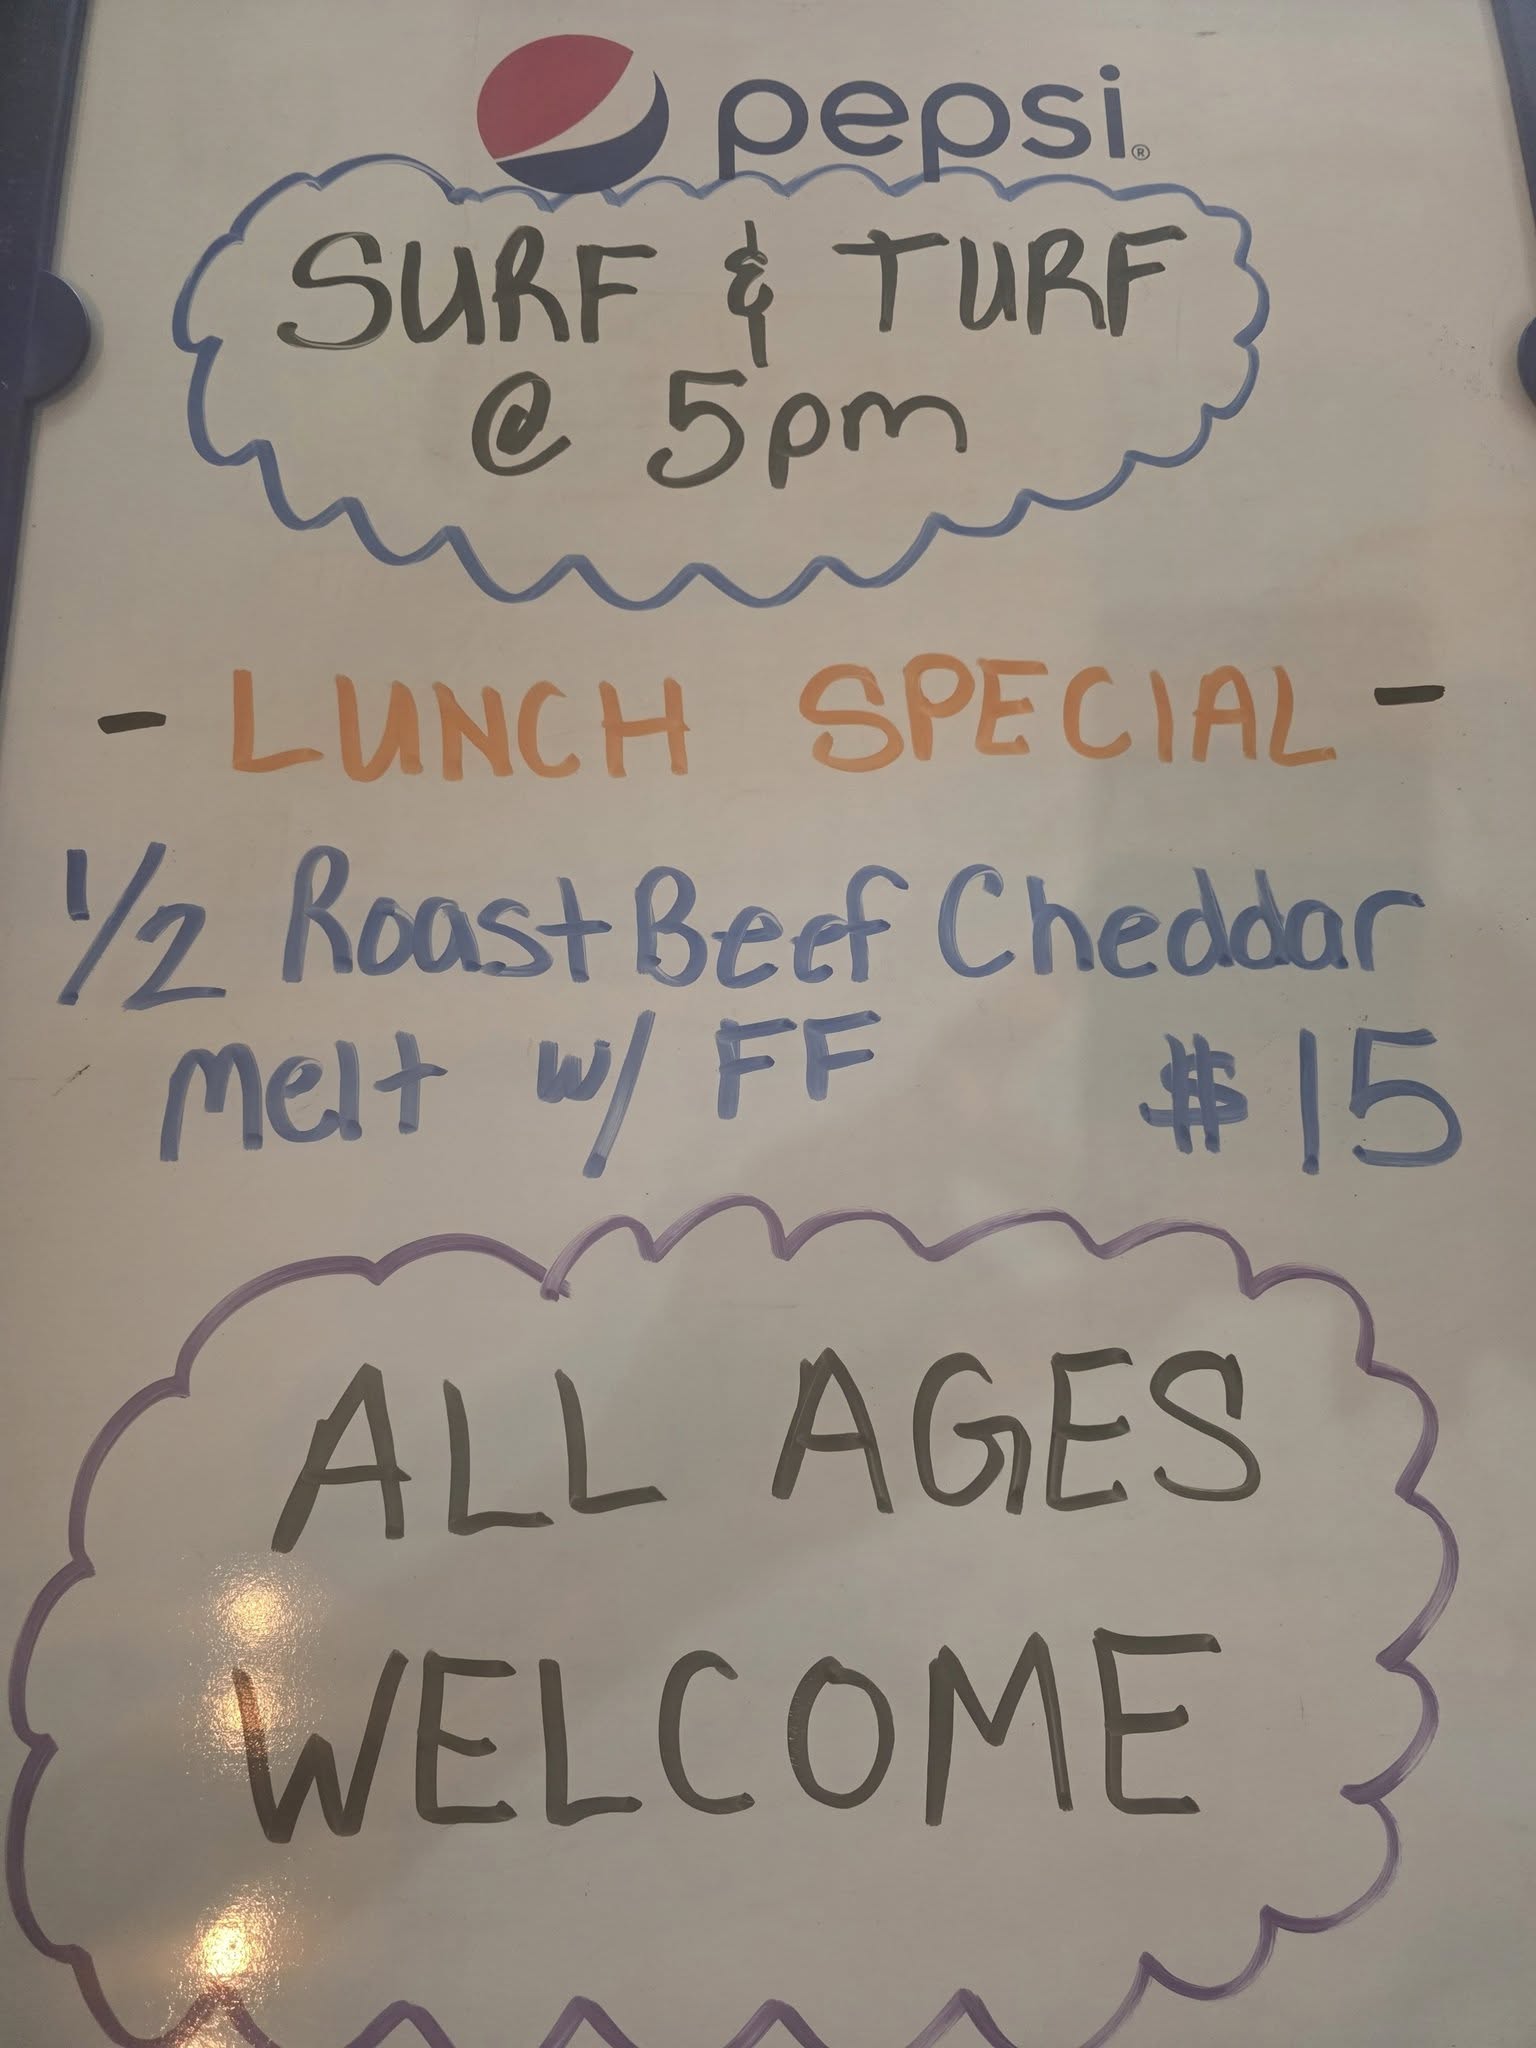 pepsi®
SURF & TURF
@ 5pm
- LUNCH SPECIAL -
1/2 Roast Beef Cheddar
Melt w/ FF $15
ALL AGES
WELCOME